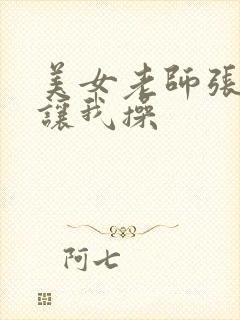 美女老師張
讓我操
阿七